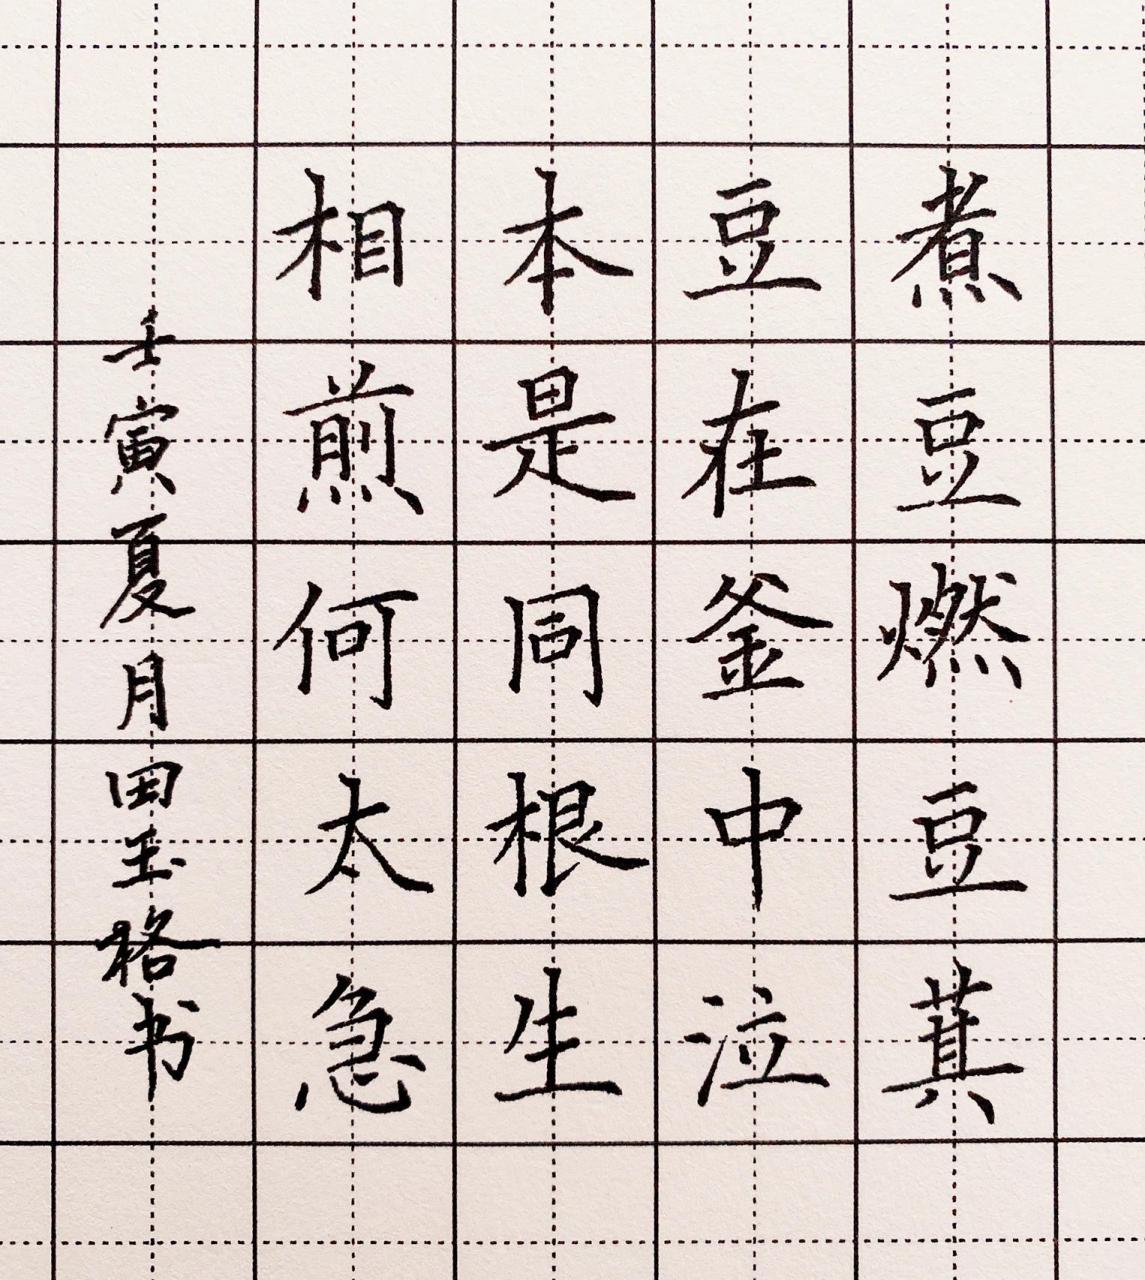 煮豆燃豆萁
豆在釜中泣
本是同根生
相煎何太急
壬寅夏月田玉格书